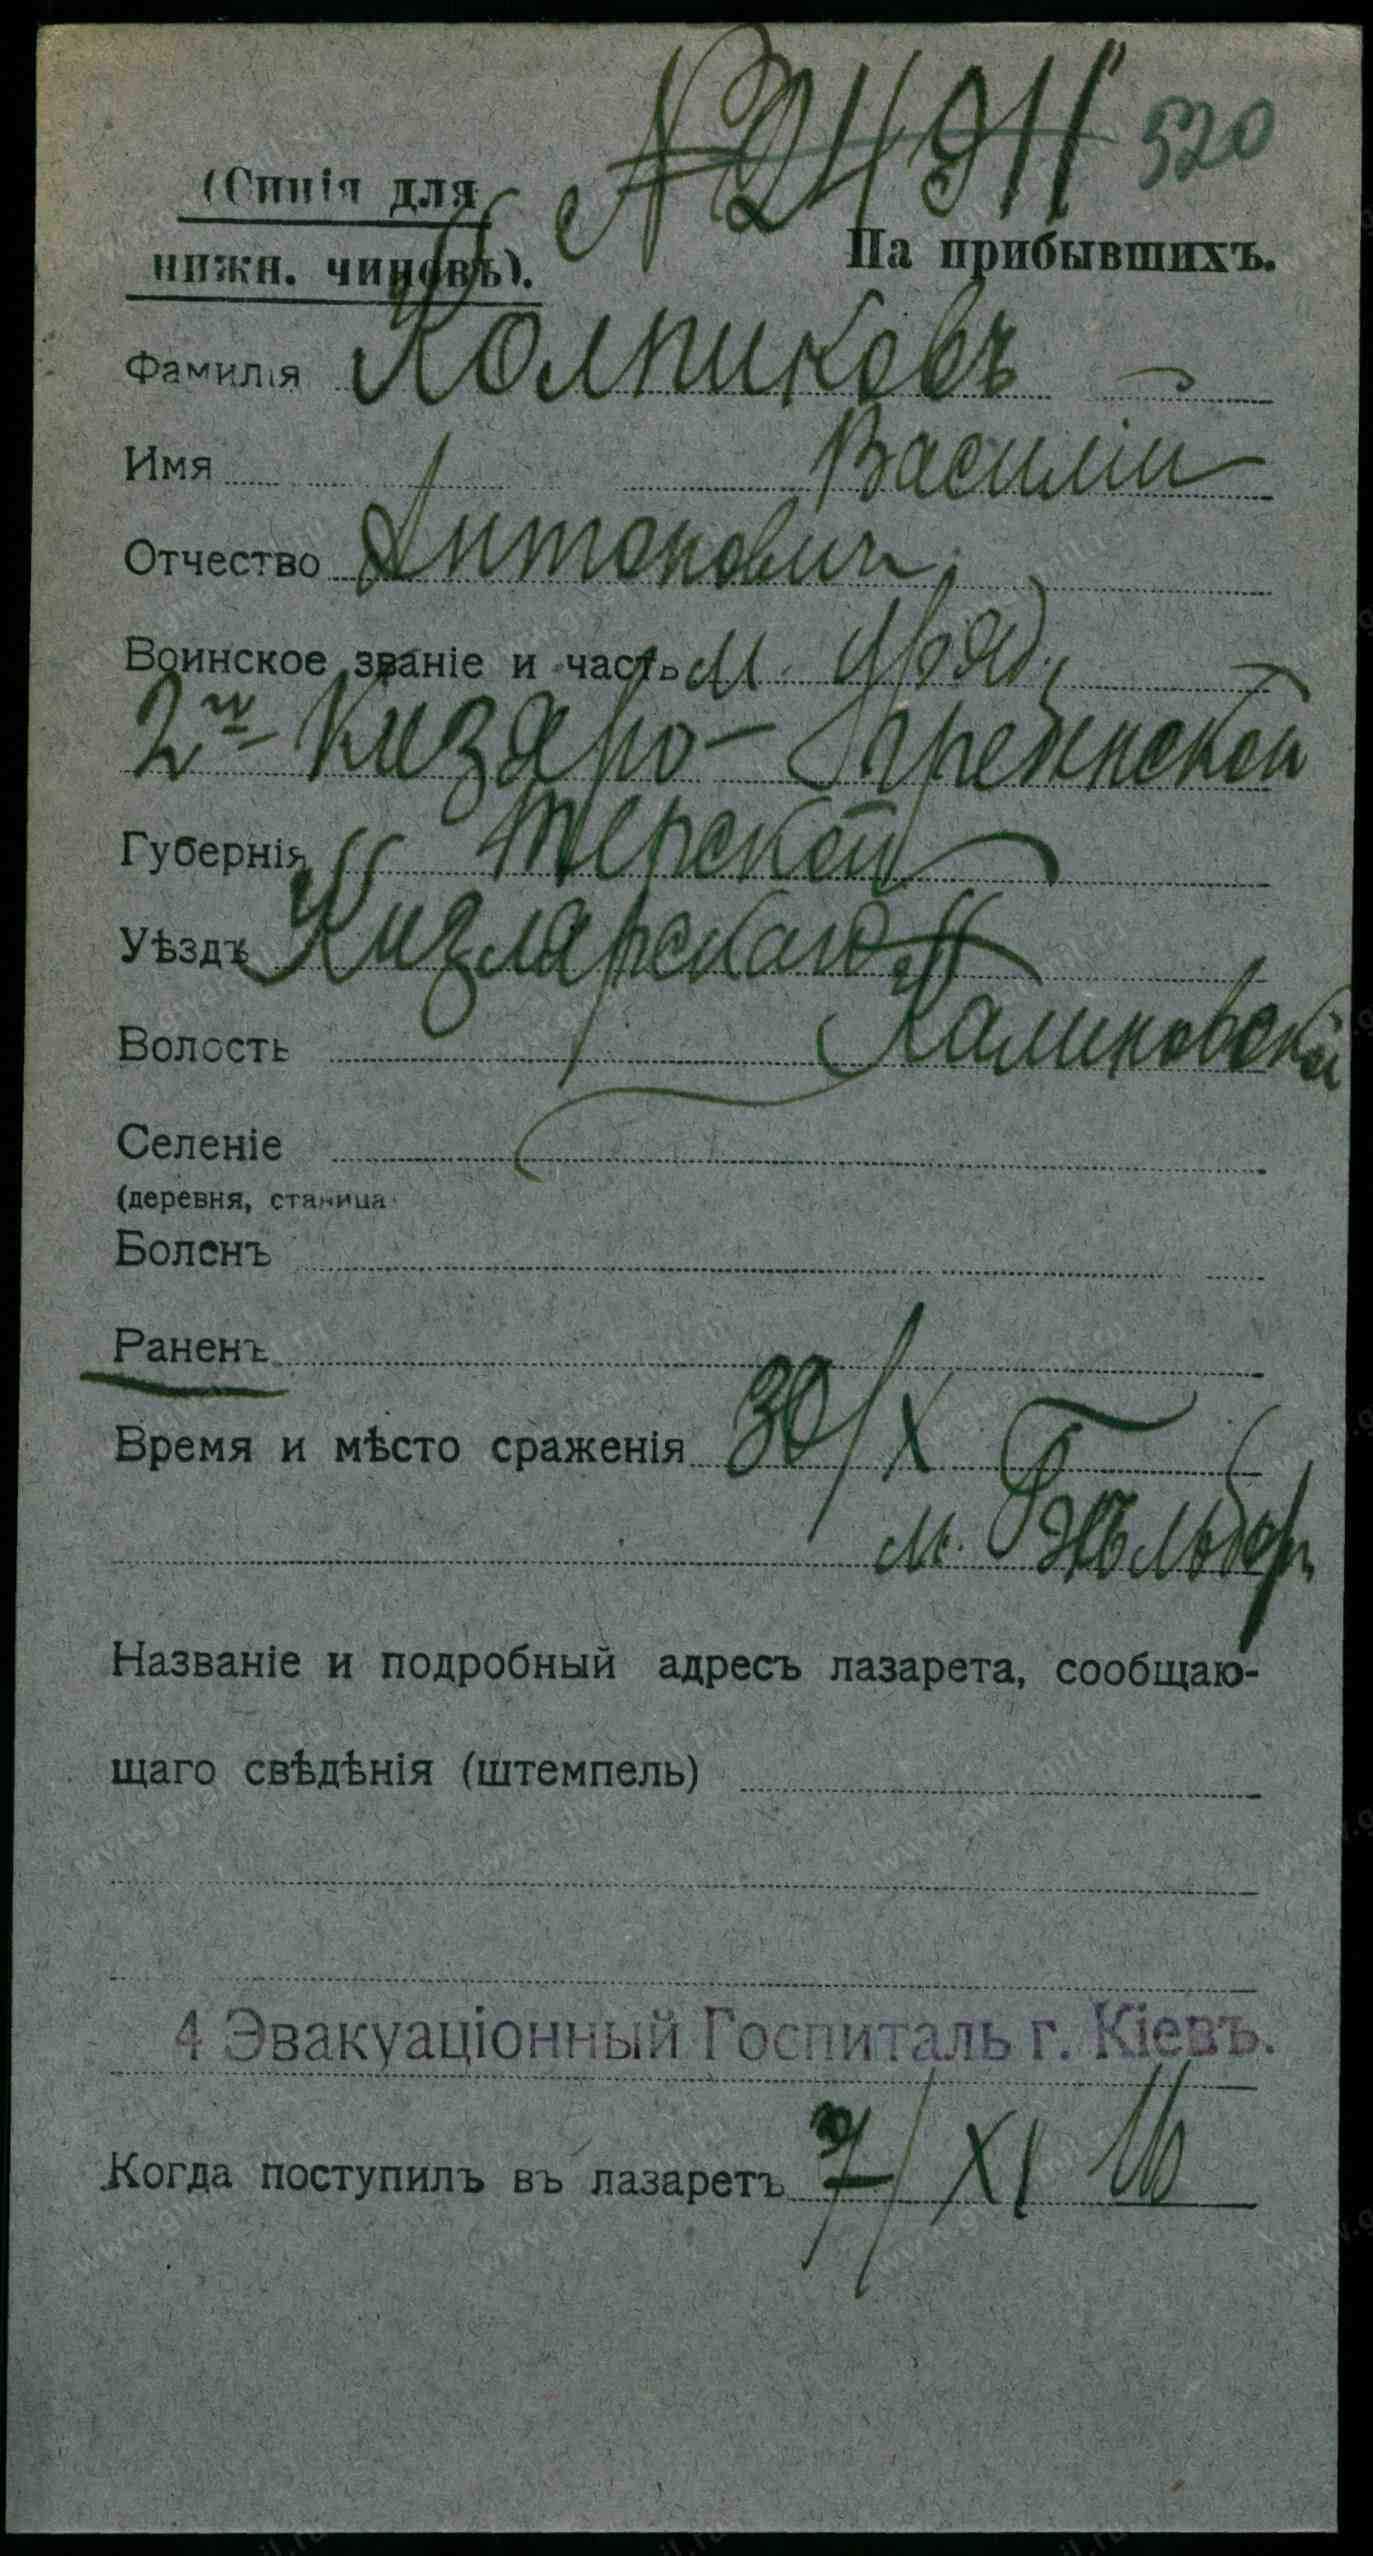 № 2491 520
(Синія для
нижн. чиновъ).
На прибывшихъ.
Фамилія Колпиковъ
Имя Василій
Отчество Антонович
Воинское званіе и часть м. уряд.
2й Кизляро-Гребенской
Губернія Терской
Уѣздъ Кизлярскаго
Волость Калиновской
Селеніе
(деревня, станица
Боленъ
Раненъ
Время и мѣсто сраженія 30/X
м.
Названіе и подробный адресъ лазарета, сообщаю-
щаго свѣдѣнія (штемпель)
4 Эвакуаціонный Госпиталь г. Кіевъ.
Когда поступилъ въ лазаретъ 7/XI 16